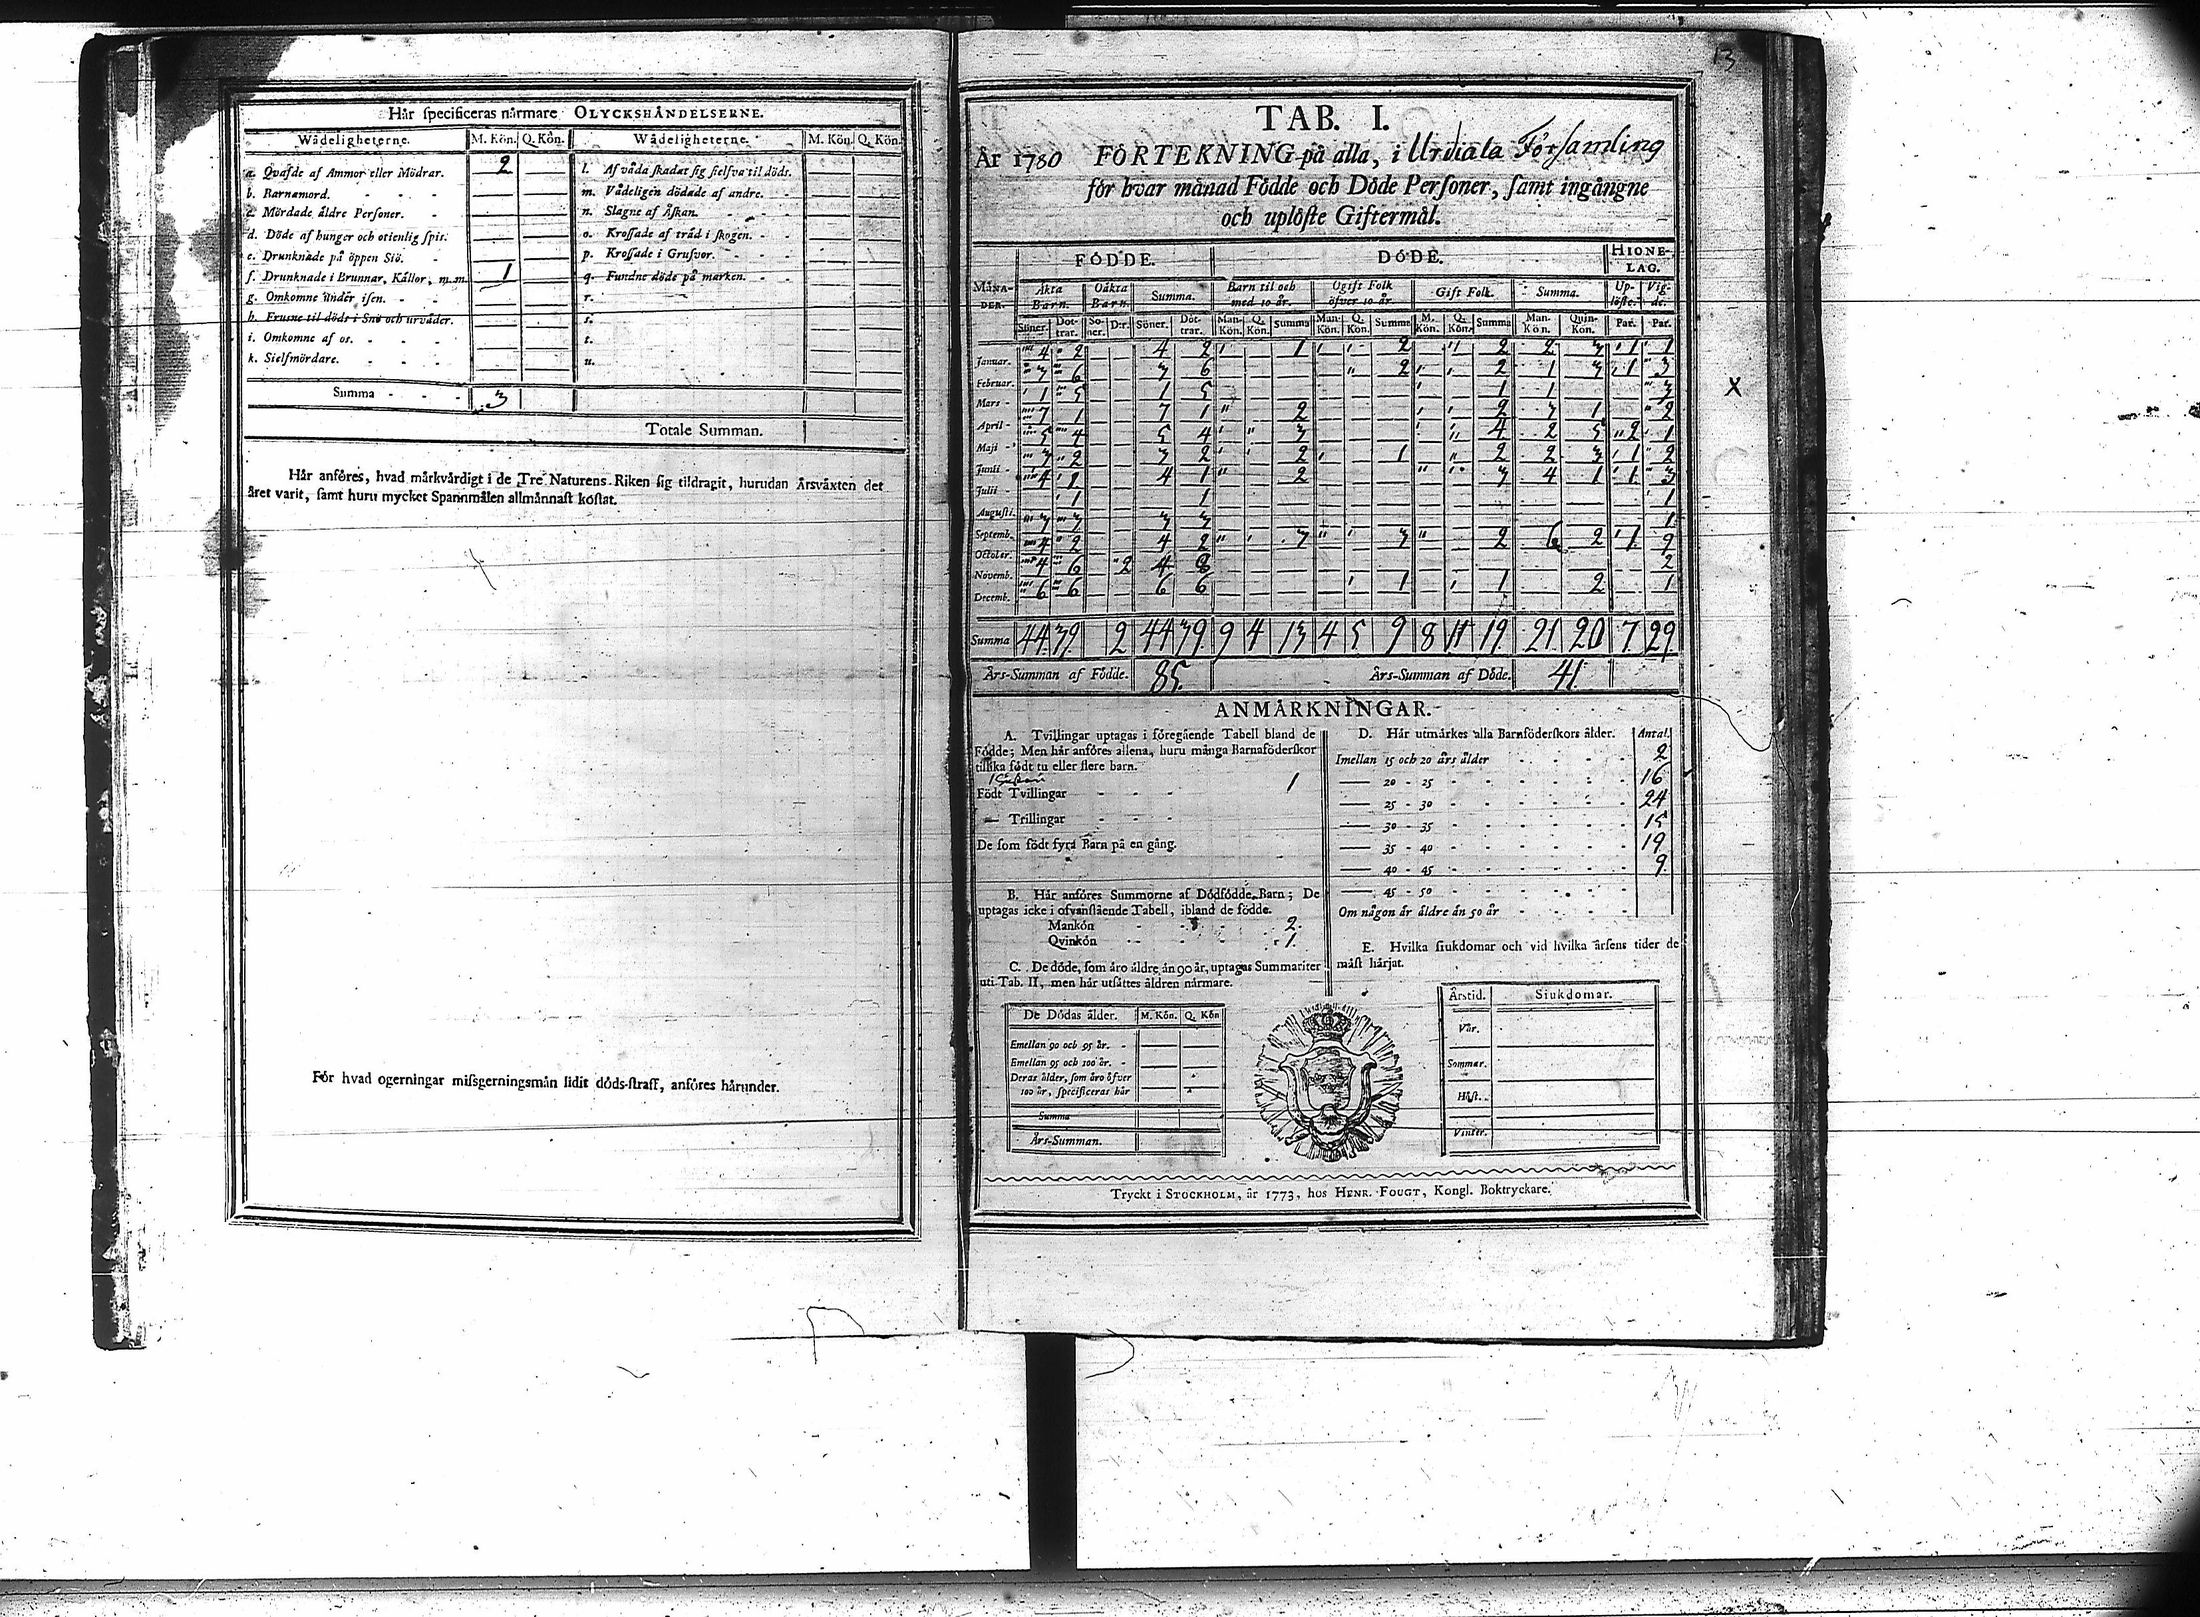 Här specificeras närmare OLYCKSHÄNDELSERNE.
Wådeligheterne. M. Kön. Q. Kön. Wådeligheterne. M. Kön. Q. Kön.
a. Qvafde af Ammor eller Mödrar. 2 l. Af våda skadat sig sielfva til döds.
b. Barnamord. m. Vådeligen dödade af andre.
c. Mördade äldre Personer. n. Slagne af Åskan.
d. Döde af hunger och otienlig spis. o. Krossade af träd i skogen.
e. Drunknade på öppen Siö. p. Krossade i Grufvor.
f. Drunknade i Brunnar, Källor, m.m. 1 q. Fundne döde på marken.
g. Omkomne under isen. r.
h. Frusne til döds i Snö och urväder. s.
i. Omkomne af os. t.
k. Sielfmördare. u.
Summa 3
Totale Summan.
Här anföres, hvad märkvärdigt i de Tre Naturens Riken sig tildragit, hurudan Årsväxten det
året varit, samt huru mycket Spannmålen allmännast kostat.
För hvad ogerningar missgerningsmän lidit döds-straff, anföres härunder.
13
TAB. I.
År 1780 FÖRTEKNING på alla, i Urdiala Församling
för hvar månad Födde och Döde Personer, samt ingångne
och uplöste Giftermål.
MÅNADER. FÖDDE. DÖDE. HIONELAG.
Äkta Barn. Oäkta Barn. Summa. Barn til och med 10 år. Ogift Folk öfver 10 år. Gift Folk. Summa. Uplöste. Vigde.
Söner. Döttrar. Söner. D:r. Söner. Döttrar. Man-Kön. Q. Kön. Summa Man-Kön. Q. Kön. Summa M. Kön. Q. Kön. Summa Man-Kön. Quin-Kön. Par. Par.
Januar. 4 2 4 2 1 2 2 2 3 1 1
Februar. 3 6 3 6 2 2 1 3 1 3
Mars 1 5 1 5 1 1 3
April 7 1 7 1 2 2 3 1 2
Maji 5 4 5 4 3 4 2 5 2 1
Junii 3 2 3 2 2 1 2 2 3 1 2
Julii 4 1 4 1 2 3 4 1 1 3
Augusti. 1 1 1
Septemb. 3 3 3 3 1
October. 4 2 4 2 3 3 2 6 2 1 9
Novemb. 4 6 2 4 8 2
Decemb. 6 6 6 6 1 1 2 1
Summa 44 39 2 44 39 9 4 13 4 5 9 8 11 19 21 20 7 29
Års-Summan af Födde. 85. Års-Summan af Döde. 41.
ANMÄRKNINGAR.
A. Tvillingar uptagas i föregående Tabell bland de
Födde; Men här anföres allena, huru många Barnaföderskor
tillika födt tu eller flere barn.
1
Födt Tvillingar
— Trillingar
De som födt fyra Barn på en gång.
B. Här anföres Summorne af Dödfödde Barn; De
uptagas icke i ofvanstående Tabell, ibland de födde.
Mankön 2.
Qvinkön 1.
C. De döde, som äro äldre än 90 år, uptagas Summariter
uti Tab. II, men här utsättes åldren närmare.
De Dödas ålder. M. Kön. Q. Kön
Emellan 90 och 95 år.
Emellan 95 och 100 år.
Deras ålder, som äro öfver
100 år, specificeras här
Summa
Års-Summan.
D. Här utmärkes alla Barnföderskors ålder. Antal.
Imellan 15 och 20 års ålder 2
20 - 25 16
25 - 30 24
30 - 35 15
35 - 40 19
40 - 45 9.
45 - 50
Om någon är äldre än 50 år
E. Hvilka siukdomar och vid hvilka årsens tider de
mäst härjat.
Årstid. Siukdomar.
Vår.
Sommar.
Höst.
Vinter.
Tryckt i STOCKHOLM, år 1773, hos HENR. FOUGT, Kongl. Boktryckare.
X